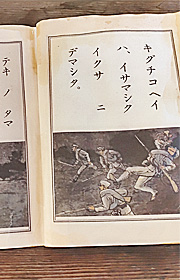 キグチコヘイ
ハ、イサマシク
イクサ ニ
デマシタ。
テキ ノ タマ